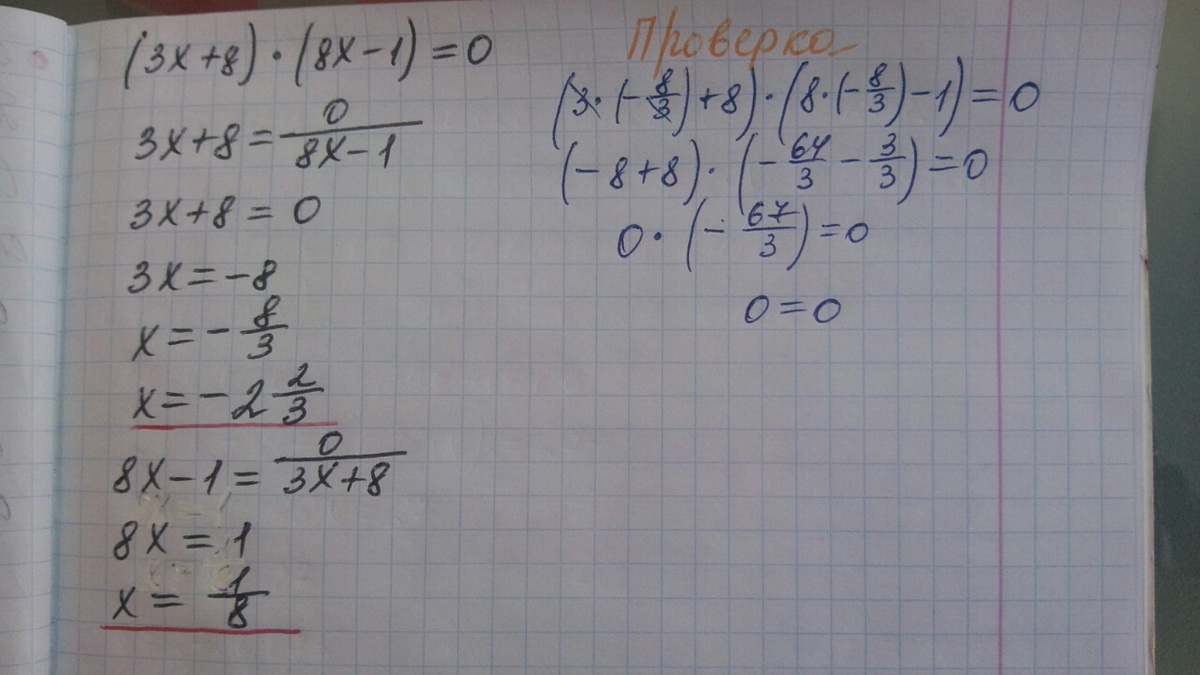 (3x+8)·(8x-1)=0
3x+8=0/(8x-1)
3x+8=0
3x=-8
x=-8/3
x=-2 2/3
8x-1=0/(3x+8)
8x=1
x=1/8
Проверка
(3·(-8/3)+8)·(8·(-8/3)-1)=0
(-8+8)·(-64/3-3/3)=0
0·(-67/3)=0
0=0